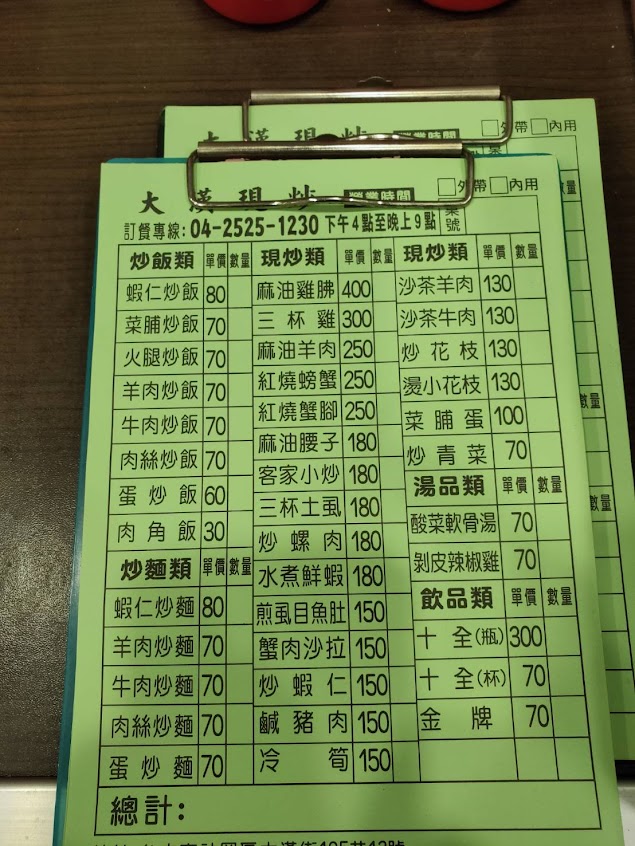 外帶 內用
大漢現炒 營業時間 外帶 內用
訂餐專線:04-2525-1230 下午4點至晚上9點 桌號
炒飯類 單價 數量
蝦仁炒飯 80
菜脯炒飯 70
火腿炒飯 70
羊肉炒飯 70
牛肉炒飯 70
肉絲炒飯 70
蛋炒飯 60
肉角飯 30
炒麵類 單價 數量
蝦仁炒麵 80
羊肉炒麵 70
牛肉炒麵 70
肉絲炒麵 70
蛋炒麵 70
現炒類 單價 數量
麻油雞胇 400
三杯雞 300
麻油羊肉 250
紅燒螃蟹 250
紅燒蟹腳 250
麻油腰子 180
客家小炒 180
三杯土虱 180
炒螺肉 180
水煮鮮蝦 180
煎虱目魚肚 150
蟹肉沙拉 150
炒蝦仁 150
鹹豬肉 150
冷筍 150
現炒類 單價 數量
沙茶羊肉 130
沙茶牛肉 130
炒花枝 130
燙小花枝 130
菜脯蛋 100
炒青菜 70
湯品類 單價 數量
酸菜軟骨湯 70
剝皮辣椒雞 70
飲品類 單價 數量
十全(瓶) 300
十全(杯) 70
金牌 70
總計: